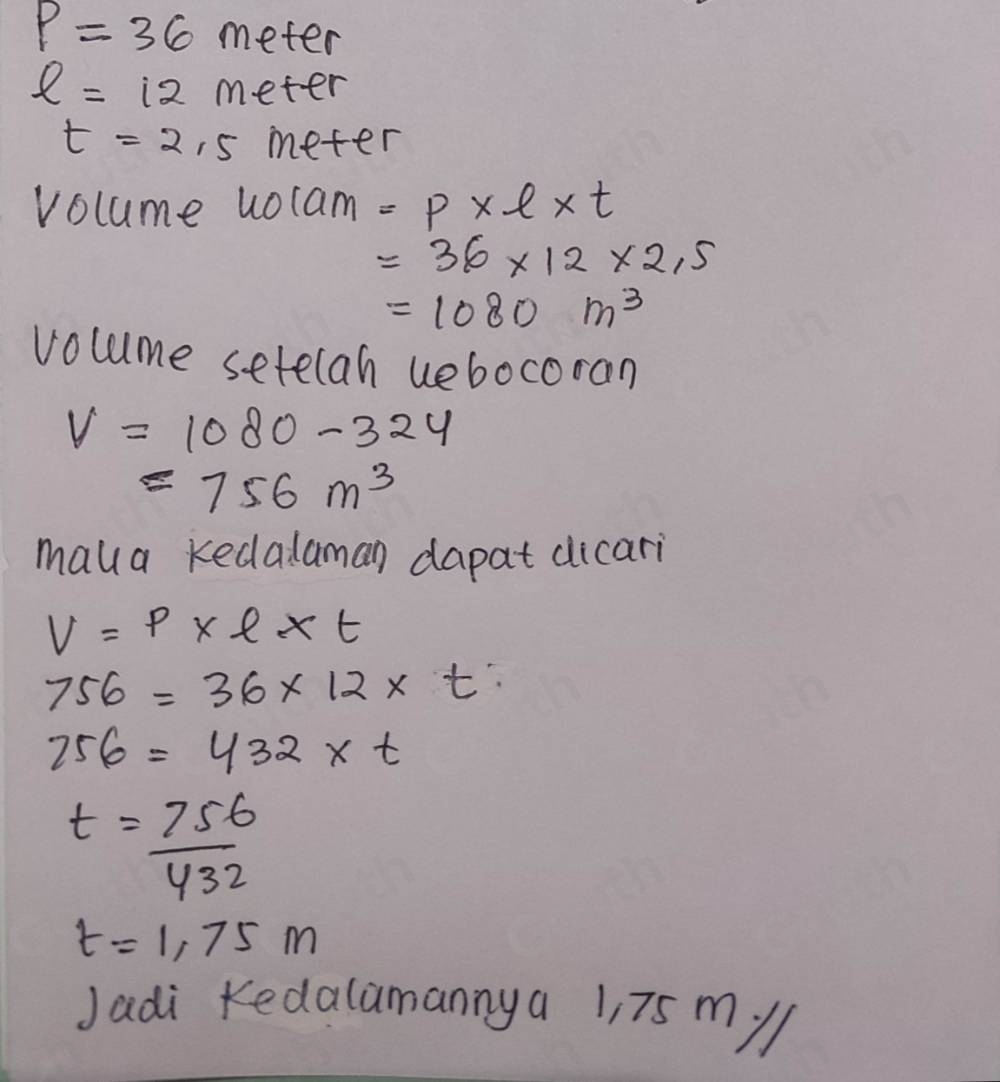 P = 36 meter
l = 12 meter
t = 2,5 meter
Volume kolam = p x l x t
= 36 x 12 x 2,5
= 1080 m³
Volume setelah kebocoran
V = 1080 - 324
= 756 m³
maka kedalaman dapat dicari
V = P x l x t
756 = 36 x 12 x t
756 = 432 x t
t = 756
432
t = 1,75 m
Jadi kedalamannya 1,75 m //